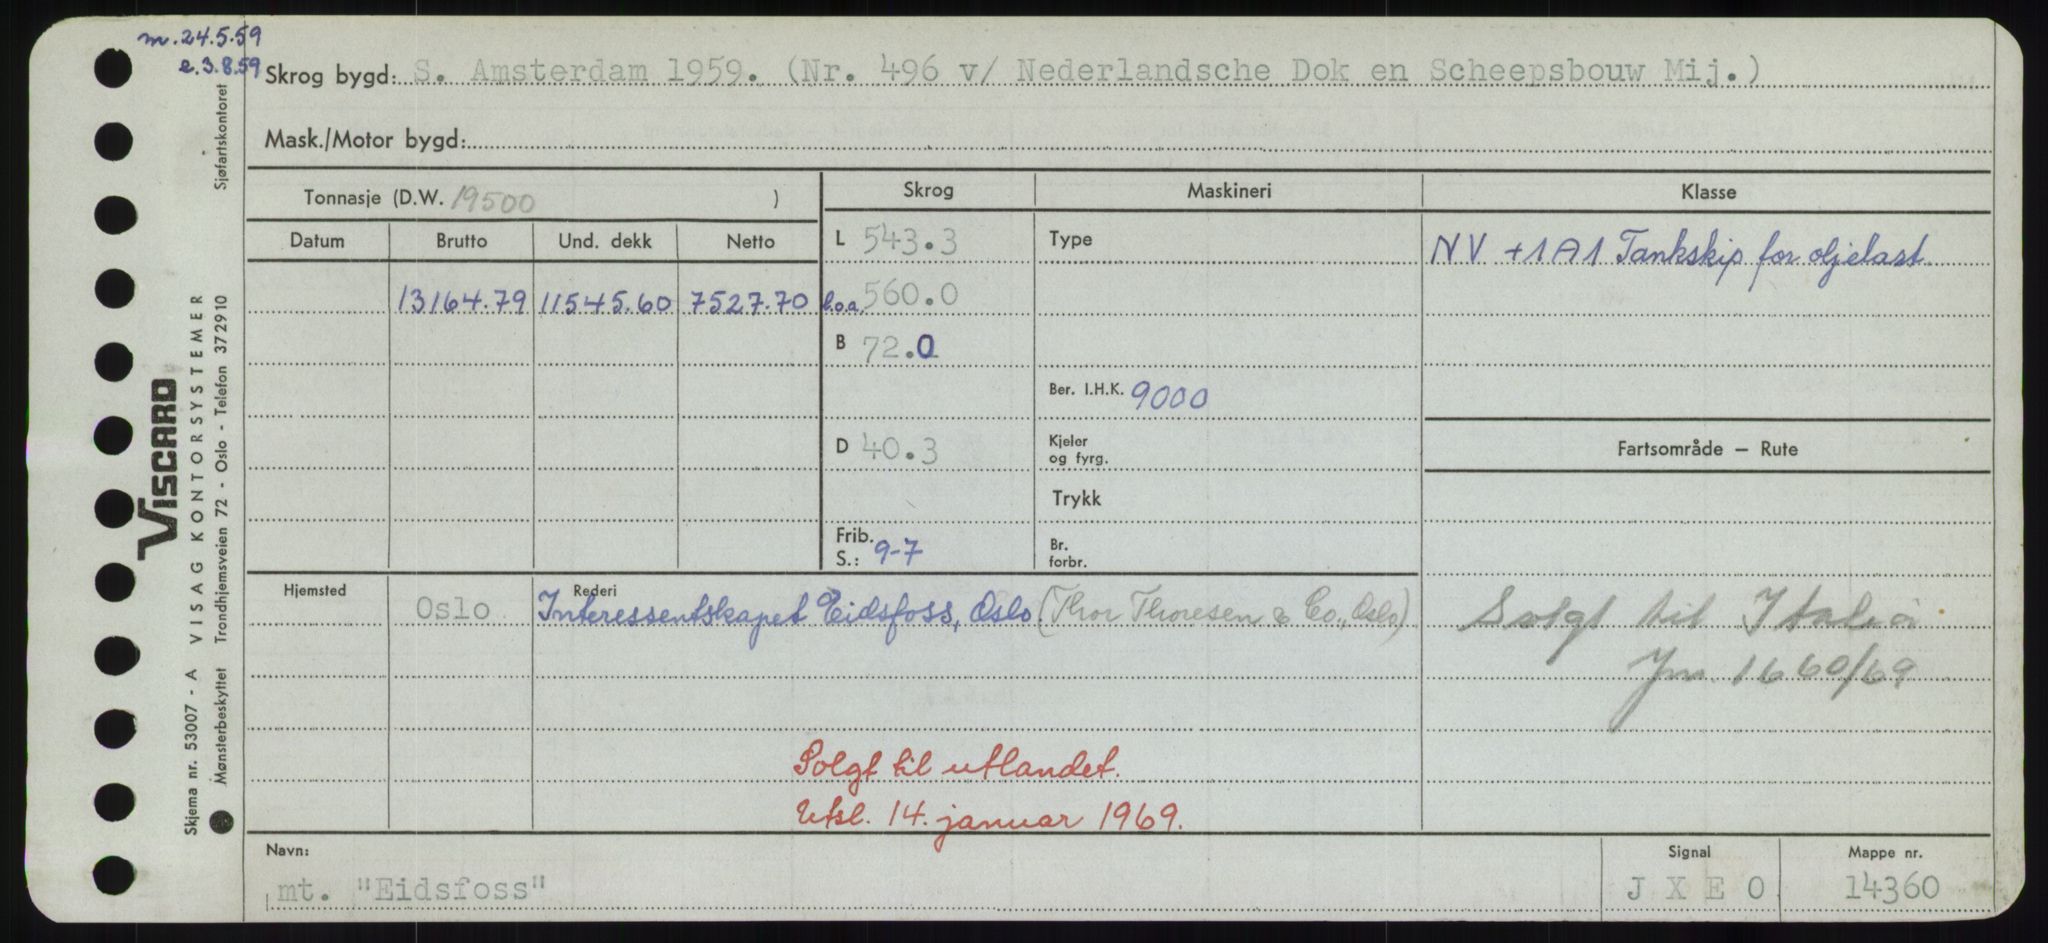 m. 24.5.59
e. 3.8.59
Skrog bygd: S. Amsterdam 1959. (Nr. 496 v/ Nederlandsche Dok en Scheepsbouw Mij.)
Mask./Motor bygd:
Tonnasje (D.W. 19500 )
Skrog
Maskineri
Klasse
Datum Brutto Und. dekk Netto
L 543.3
Type
NV +1A1 Tankskip for oljelast
13164.79 11545.60 7527.70
l.o.a. 560.0
B 72.0
Ber. I.H.K. 9000
D 40.3
Kjeler og fyrg.
Fartsområde — Rute
Trykk
Frib. S.: 9-7
Br. forbr.
Hjemsted
Rederi
Oslo Interessentskapet Eidsfoss, Oslo. (Thor Thoresen & Co., Oslo)
Solgt til Italia
Jnr. 1660/69
Solgt til utlandet.
Utsl. 14. januar 1969.
Navn:
Signal
Mappe nr.
mt. "Eidsfoss"
J X E O
14360
Sjøfartskontoret
VISCARD
VISAG KONTORSYSTEMER
Trondhjemsveien 72 - Oslo - Telefon 372910
Skjema nr. 53007 - A
Mønsterbeskyttet